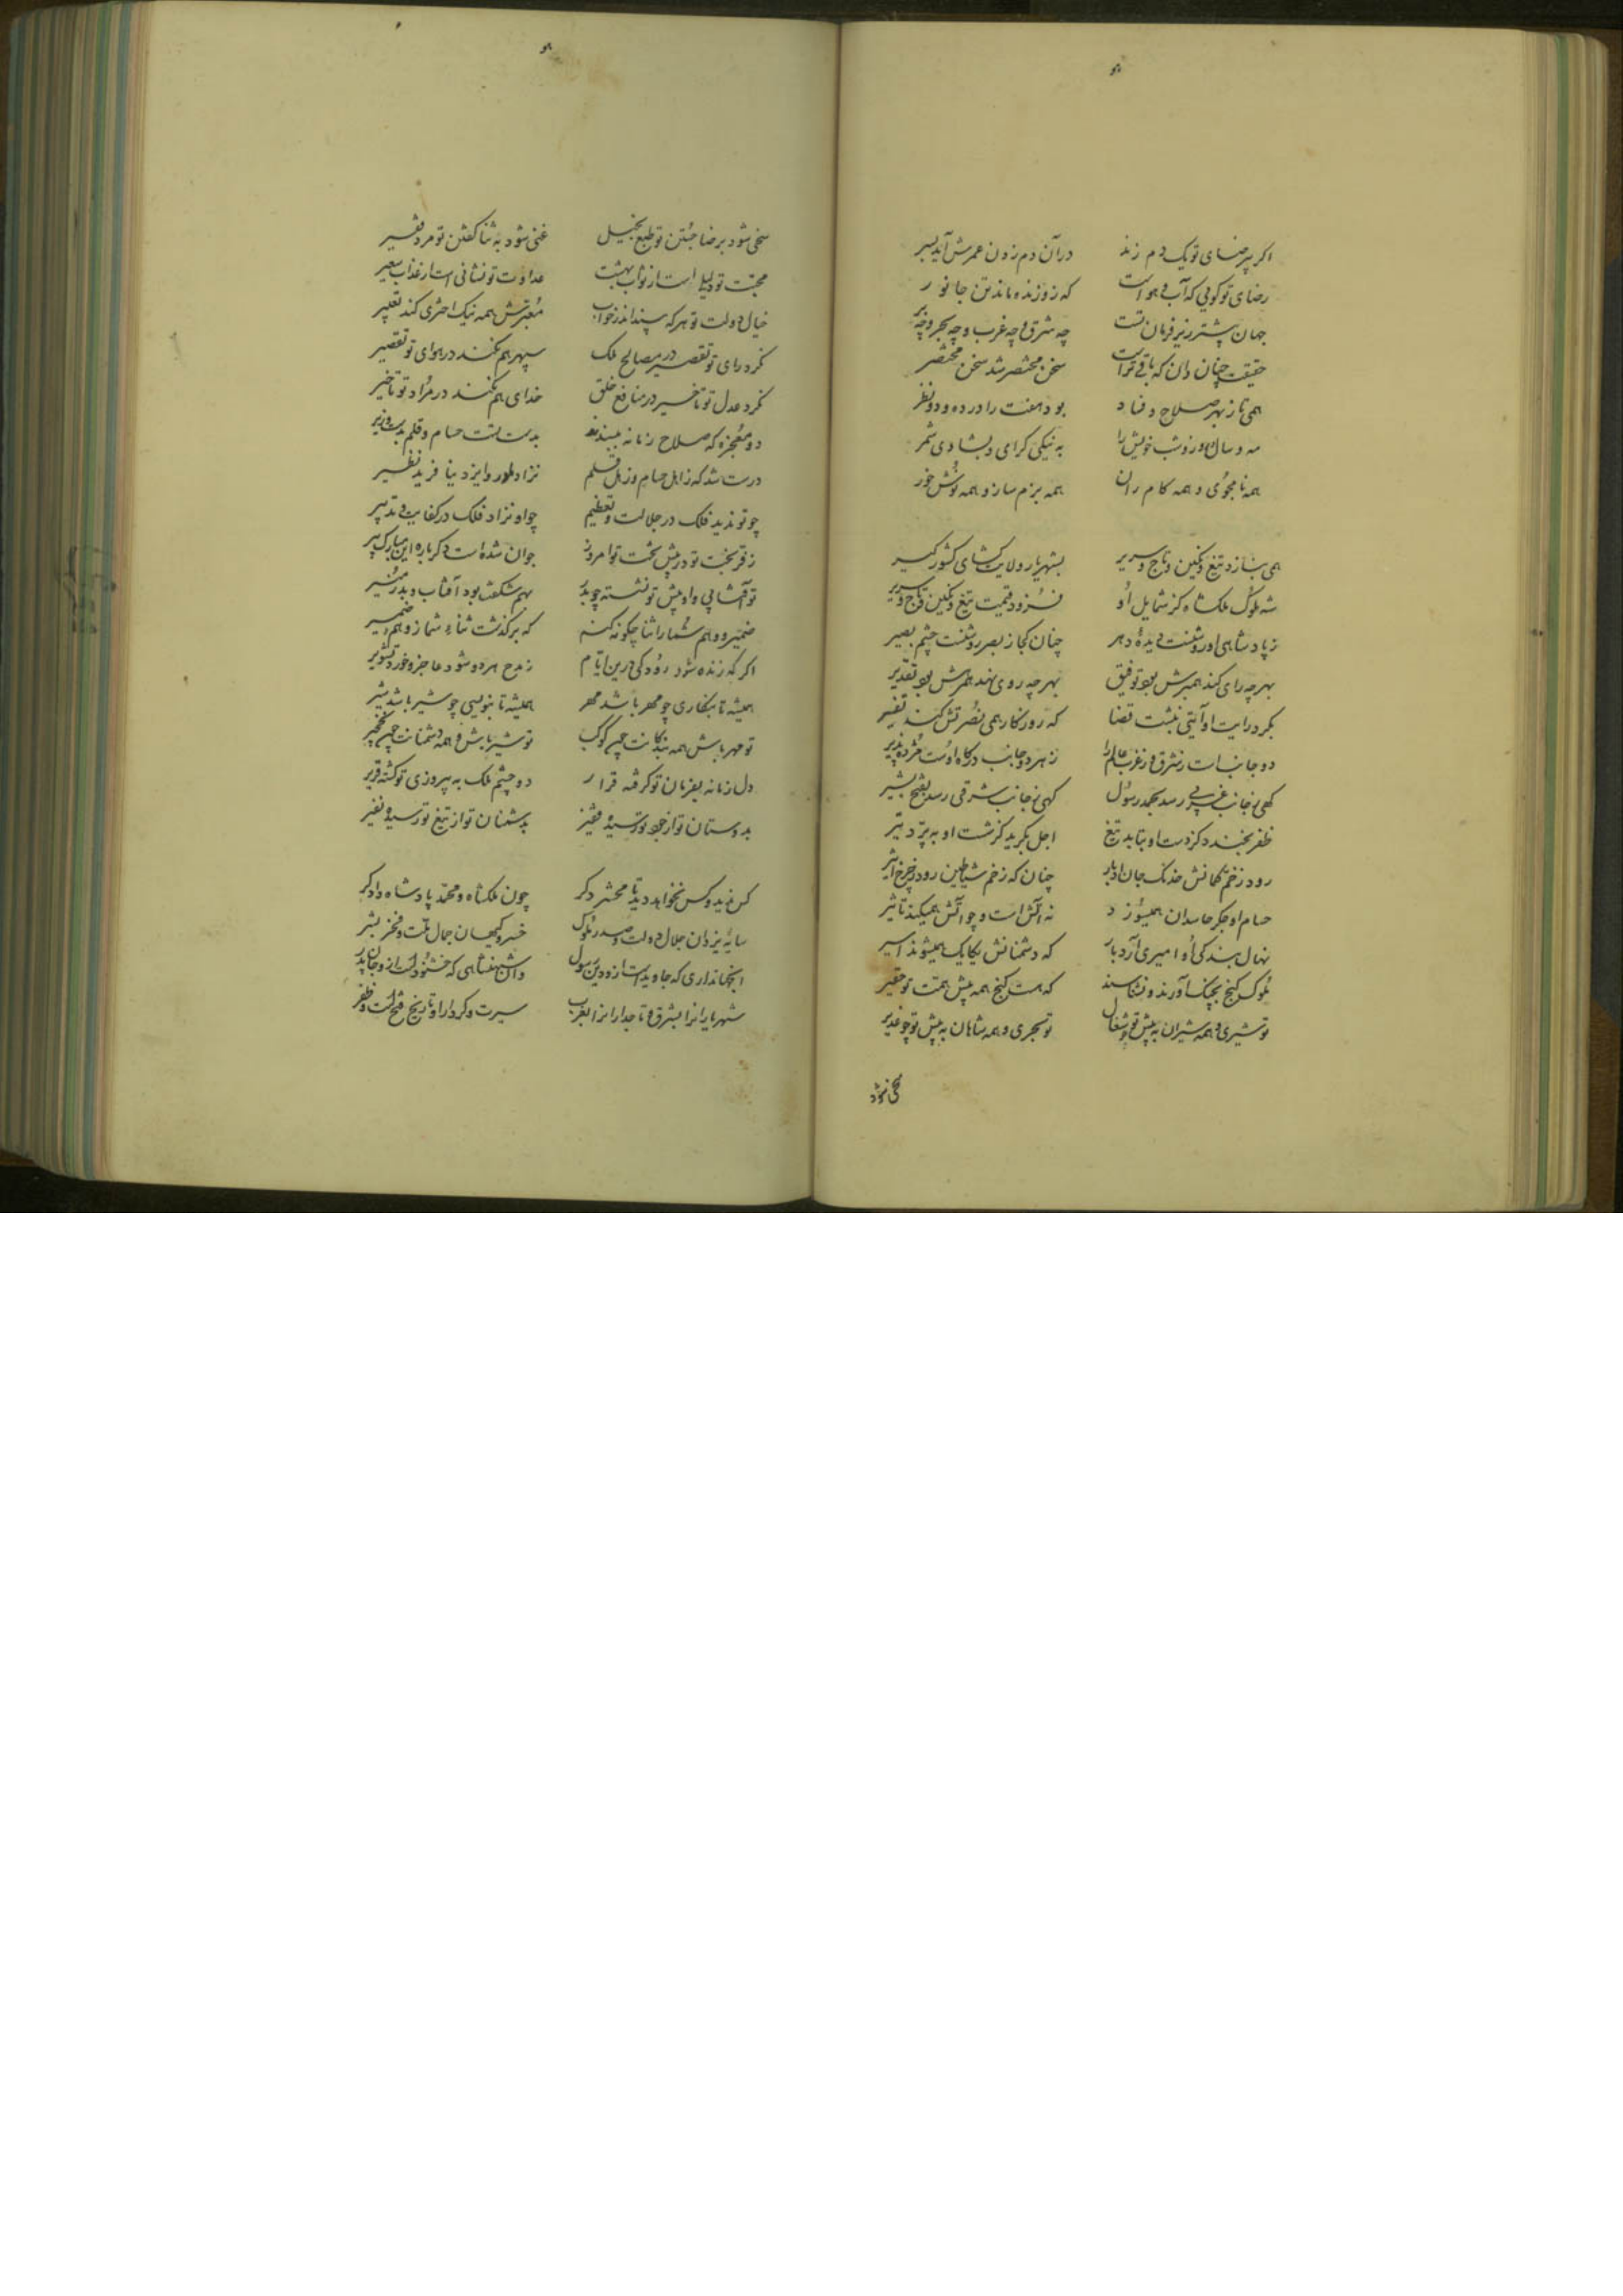 اکر بیرضای تو یک دم زند    در آن دم زدن عمرش آید بسر
رضای تو کویی که آب و هواست    که زو زنده ماند تن جانور
جهان بیشتر زیر فرمان تست    چه شرق و چه غرب و چه بحر و چه بر
حقیقت چنان دان که باقی تراست    سخن مختصر شد سخن مختصر
همی تا ز بهر صلاح و فساد    بود هفت را در ده و دو نظر
مه و سال و روز و شب خویش را    به نیکی کرای و بشادی شمر
همه نام جوی و همه کام ران    همه بزم ساز و همه نوش خور
همی بنازد تیغ و نکین و تاج و سریر    بشهریار ولایت کشای کشورکیر
شه ملوک ملکشاه کز شمایل او    فزود قیمت تیغ و نکین و تاج و سریر
ز پادشاهی او روشنست دیدهٔ دهر    چنان کجا ز بصر روشنست چشم بصیر
بهر چه رای کند همبرش بود توفیق    بهر چه روی نهد همرهش بود تقدیر
بکرد رایت او آیتی نبشت قضا    که روزکار همی نصرتش کند تفسیر
دو جانب است ز شرق و ز غرب عالم را    ز هر دو جانب درکاه اوست مژده پذیر
کهی ز جانب غربی رسد بحمد رسول    کهی ز جانب شرقی رسد بفتح بشیر
ظفر بخندد کز دست او بتابد تیغ    اجل بکرید کز شست او بپرد تیر
رود ز زخم کمانش خدنک جان اوبار    چنان که زخم شیاطین رود ز چرخ اثیر
حسام او جکر حاسدان همیسوزد    نه آتش است و چو آتش همیکند تاثیر
نهال بندکی او امیری آرد بار    که دشمنانش یکایک همیشوند اسیر
ملوک کنج بچنک آورند و نشناسند    که هست کنج همه پیش همت تو حقیر
تو شیری و همه شیران به پیش تو چو شغال    تو بحری و همه شاهان به پیش تو چو غدیر
سخی شود
سخی شود برضا جستن تو طبع بخیل    غنی شود به ثنا کفتن تو مرد فقیر
محبت تو دلیل است از ثواب بهشت    عداوت تو نشانی است از عذاب سعیر
خیال دولت تو هر که بیند اندر خواب    معبرش همه نیک اختری کند تعبیر
نکرد رای تو تقصیر در مصالح ملک    سپهر هم نکند در هوای تو تقصیر
نکرد عدل تو تاخیر در منافع خلق    خدای هم نکند در مراد تو تاخیر
دو معجزه که صلاح زمانه ببندند    بدست تست حسام و قلم بدست وزیر
درست شد که ز اهل حسام و ز اهل قلم    نزاد مادر و ایزد نیافرید نظیر
چو تو ندید فلک در جلالت و تعظیم    چو او نزاد فلک در کفایت و تدبیر
ز فر بخت تو در پیش تخت تو امروز    جوان شده است دکر باره این مبارک پیر
تو آفتابی و او پیش تو نشسته چو بدر    بهم شکفت بود آفتاب و بدر منیر
ضمیر و وهم شما را ثنا چکونه کنند    که برکذشت ثناء شما ز وهم و ضمیر
اکر که زنده شود رودکی درین ایام    ز مدح هر دو شود عاجز و خورد تشویر
همیشه تا بنکاری چو مهر باشد مهر    همیشه تا بنویسی چو شیر باشد شیر
تو مهر باش همه بندکانت چون کوکب    تو شیر باش و همه دشمنانت چون نخجیر
دل زمانه بفرمان تو کرفته قرار    دو چشم ملک به پیروزی تو کشته قریر
بدوستان تو از جود تو رسیده    بدشمنان تو از تیغ تو رسیده نفیر
کس ندید و کس نخواهد دید تا محشر دکر    چون ملکشاه و محمد پادشاه دادکر
سایهٔ یزدان جلال دولت و صدر ملوک    خسرو کیهان جمال ملت و فخر بشر
آنجهانداری که جاوید است ازو دین رسول    وان شهنشاهی که خشنود است ازو جان پدر
شهریارانرا بشرق و تاجدارانرا بغرب    سیرت و کردار او تاریخ فتح است و ظفر